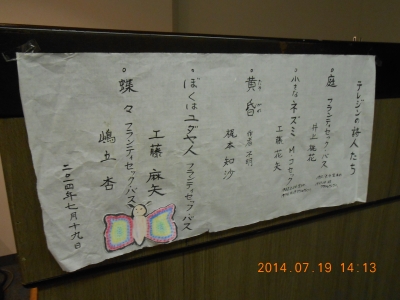 テレジンの詩人たち
。庭 フランティセック・バス
井上 
。小さなネズミ M・コセック
工藤 花矢
。黄昏 作者不明
梶本 知沙
。ぼくはユダヤ人 フランティセック・バス
工藤 麻矢
。蝶々 フランティセック・バス
嶋立 杏
二〇一四年七月十九日
2014.07.19 14:13